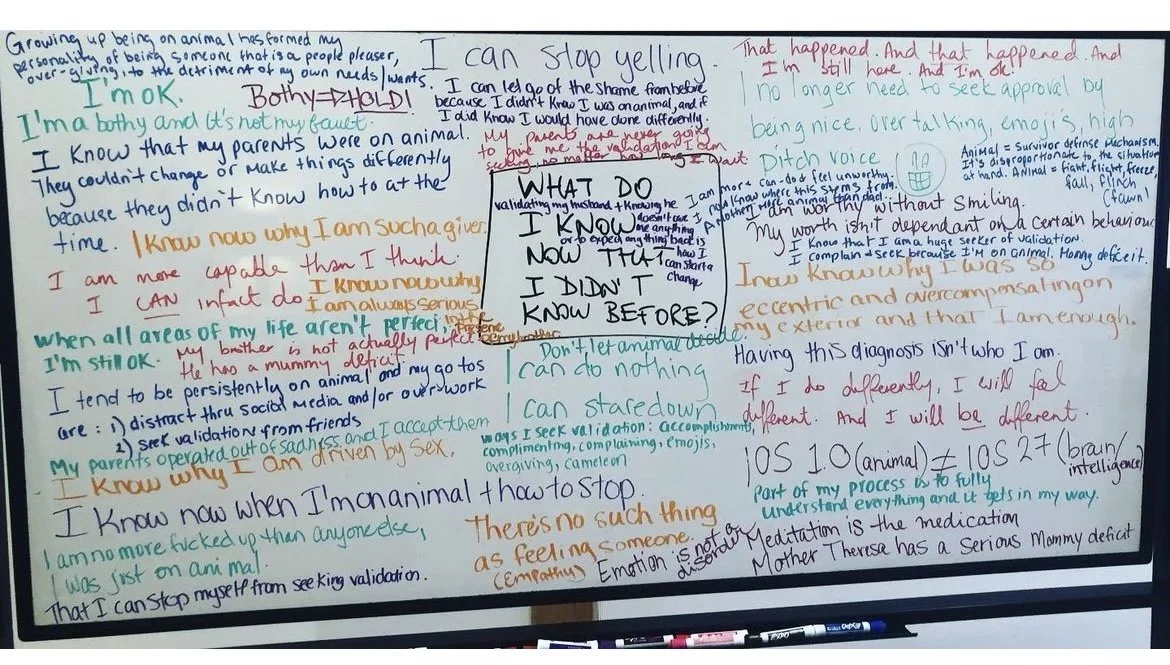 Growing up being on animal has formed my
personality of being someone that is a people pleaser,
over-giving, to the detriment of my own needs/wants.
I'm OK.
Bothy => HOLD!
I'm a bothy and it's not my fault.
I know that my parents were on animal.
They couldn't change or make things differently
because they didn't know how to at the
time.
I know now why I am such a giver
I am more capable than I think.
I CAN infact do
I know now why
I am always serious
in the
presence
of my brother
When all areas of my life aren't perfect,
I'm still OK.
My brother is not actually perfect
He has a mummy deficit
I tend to be persistently on animal and my go tos
are: 1) distract thru social media and/or over-work
2) seek validation from friends
My parents operated out of sadness and I accept them
I know why I am driven by sex.
I know now when I'm on animal + how to stop.
I am no more fucked up than anyone else,
I was just on animal.
That I can stop myself from seeking validation.
I can stop yelling.
I can let go of the shame from before
because I didn't know I was on animal, and if
I did know I would have done differently.
My parents are never going
to give me the validation I am
seeking, no matter how long I wait
WHAT DO
validating my husband + knowing he
I KNOW
doesn't owe
me anything
or to expect anything back is
NOW THAT
how I
can start a
change
I DIDN'T
KNOW BEFORE?
Don't let animal decide.
I can do nothing
I can staredown
ways I seek validation: accomplishments,
complimenting, complaining, emojis,
overgiving, cameleon
There's no such thing
as feeling someone.
(empathy)
Emotion is not a
disorder
That happened. And that happened. And
I'm still here. And I'm ok!
I no longer need to seek approval by
being nice, over talking, emoji's, high
pitch voice
Animal = Survivor defense mechanism.
It's disproportionate to the situation
at hand. Animal = fight, flight, freeze,
fail, flinch
(fawn)
I am more can-do & feel unworthy.
I now know where this stems from.
Mother more animal than dad.
I am worthy without smiling.
My worth isn't dependant on a certain behaviour
I know that I am a huge seeker of validation.
I complain + seek because I'm on animal. Mommy deficit.
I now know why I was so
eccentric and overcompensating on
my exterior and that I am enough.
Having this diagnosis isn't who I am.
If I do differently, I will feel
different. And I will be different.
iOS 1.0 (animal) ≠ IOS 27 (brain/
intelligence)
Part of my process is to fully
understand everything and it gets in my way.
Meditation is the medication
Mother Theresa has a serious Mommy deficit
EXPO